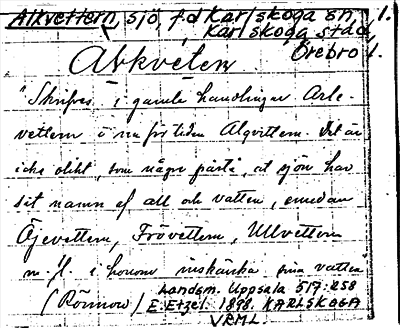 Alkvettern, sjö, f d Karlskoga sn 1.
Karlskoga stad,
Örebro l.
Abkvetern
"Skrifves i gamle handlingar Arle-
vettern i nu för tiden Alqvittern. Det är
icke olikt, som några påstå, at sjön har
sit namn af all och vatten, emedan
Öjevettern, Frövettern, Ullvettern
m. fl. i honom inskänka sina vatten"
(Rönnow) Landsm. Uppsala 517:258
E. Etzel. 1898. KARLSKOGA
VRML.